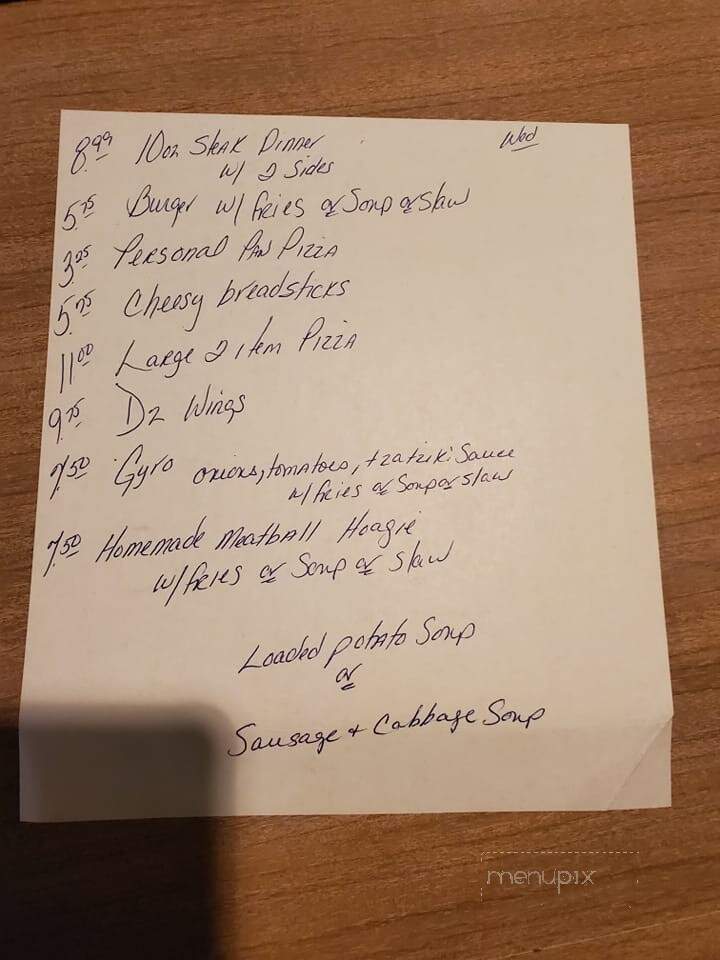 8.99 10oz Steak Dinner Wed
w/ 2 Sides
5.75 Burger w/ fries or Soup or Slaw
3.25 Personal Pan Pizza
5.75 Cheesy breadsticks
11.00 Large 2 item Pizza
9.75 Dz Wings
7.50 Gyro onions, tomatoes, tzatziki Sauce
w/ fries or Soup or slaw
7.50 Homemade Meatball Hoagie
w/ fries or Soup or slaw
Loaded potato Soup
or
Sausage + Cabbage Soup
menupix